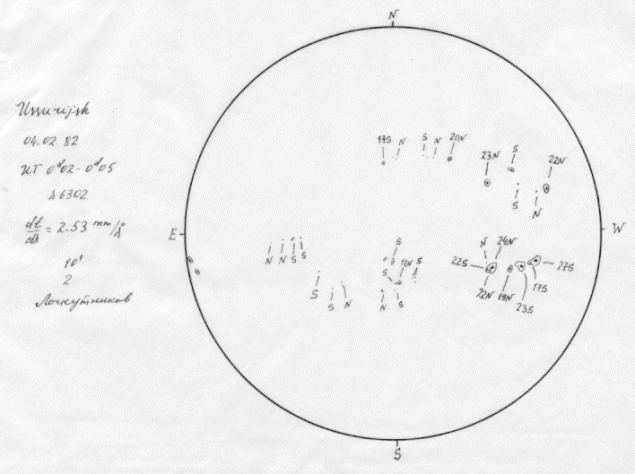 Ussurijsk
04.02.82
UT 0ᵈ02 - 0ᵈ05
λ6302
dl/dλ = 2.53 mm/Å
2
N
E
W
S
17S N S N 20N
23N S 22N
S N
N N S S
S
S 17N S
S S N
N S
N 24N
22S 27S
22N 19N 17S
23S